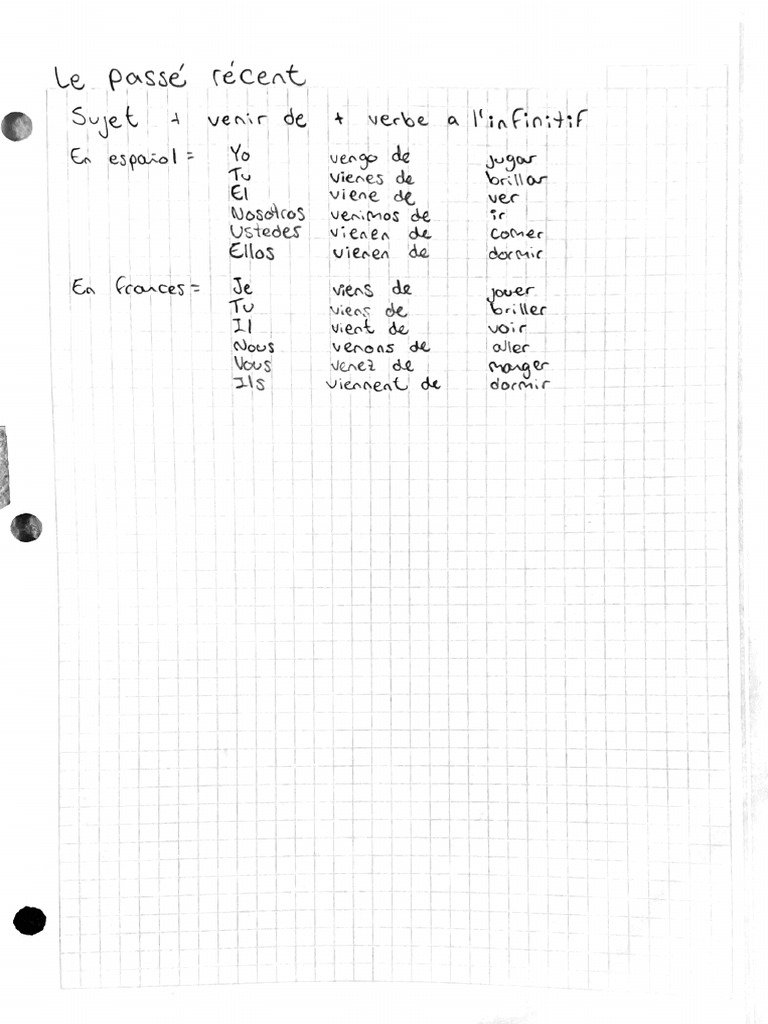 Le passé récent
Sujet + venir de + verbe a l'infinitif
En español = Yo vengo de jugar
Tu vienes de brillar
El viene de ver
Nosotros venimos de ir
Ustedes vienen de comer
Ellos vienen de dormir
En frances = Je viens de jouer
Tu viens de briller
Il vient de voir
Nous venons de aller
Vous venez de manger
Ils viennent de dormir